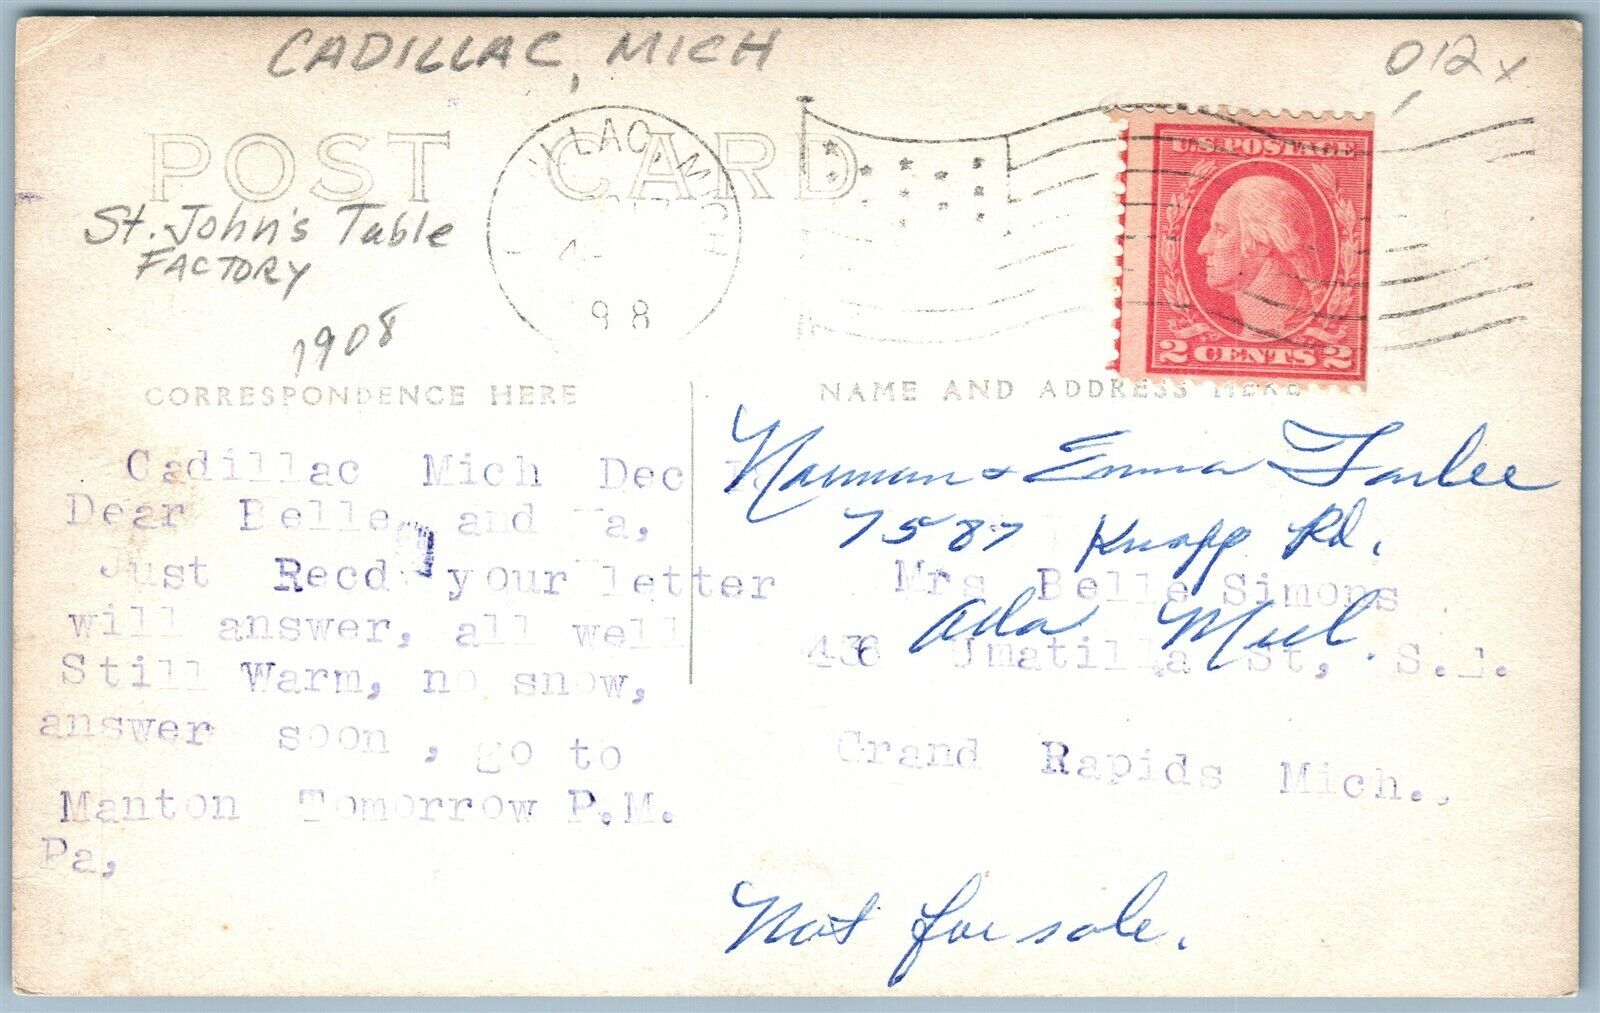 CADILLAC, MICH
012x
POST CARD
LLAC, MICH
98
U.S. POSTAGE
2 CENTS 2
St. John's Table
FACTORY
1908
CORRESPONDENCE HERE
NAME AND ADDRESS HERE
Cadillac Mich Dec
Dear Belle and Va,
Just Recd your letter
will answer, all well
Still Warm, no snow,
answer soon, go to
Manton Tomorrow P.M.
Pa,
Norman & Emma Farlee
7587 Knapp Rd.
Ada Mich.
Mrs Belle Simons
436 Umatilla St, S.
Grand Rapids Mich.,
Not for sale.